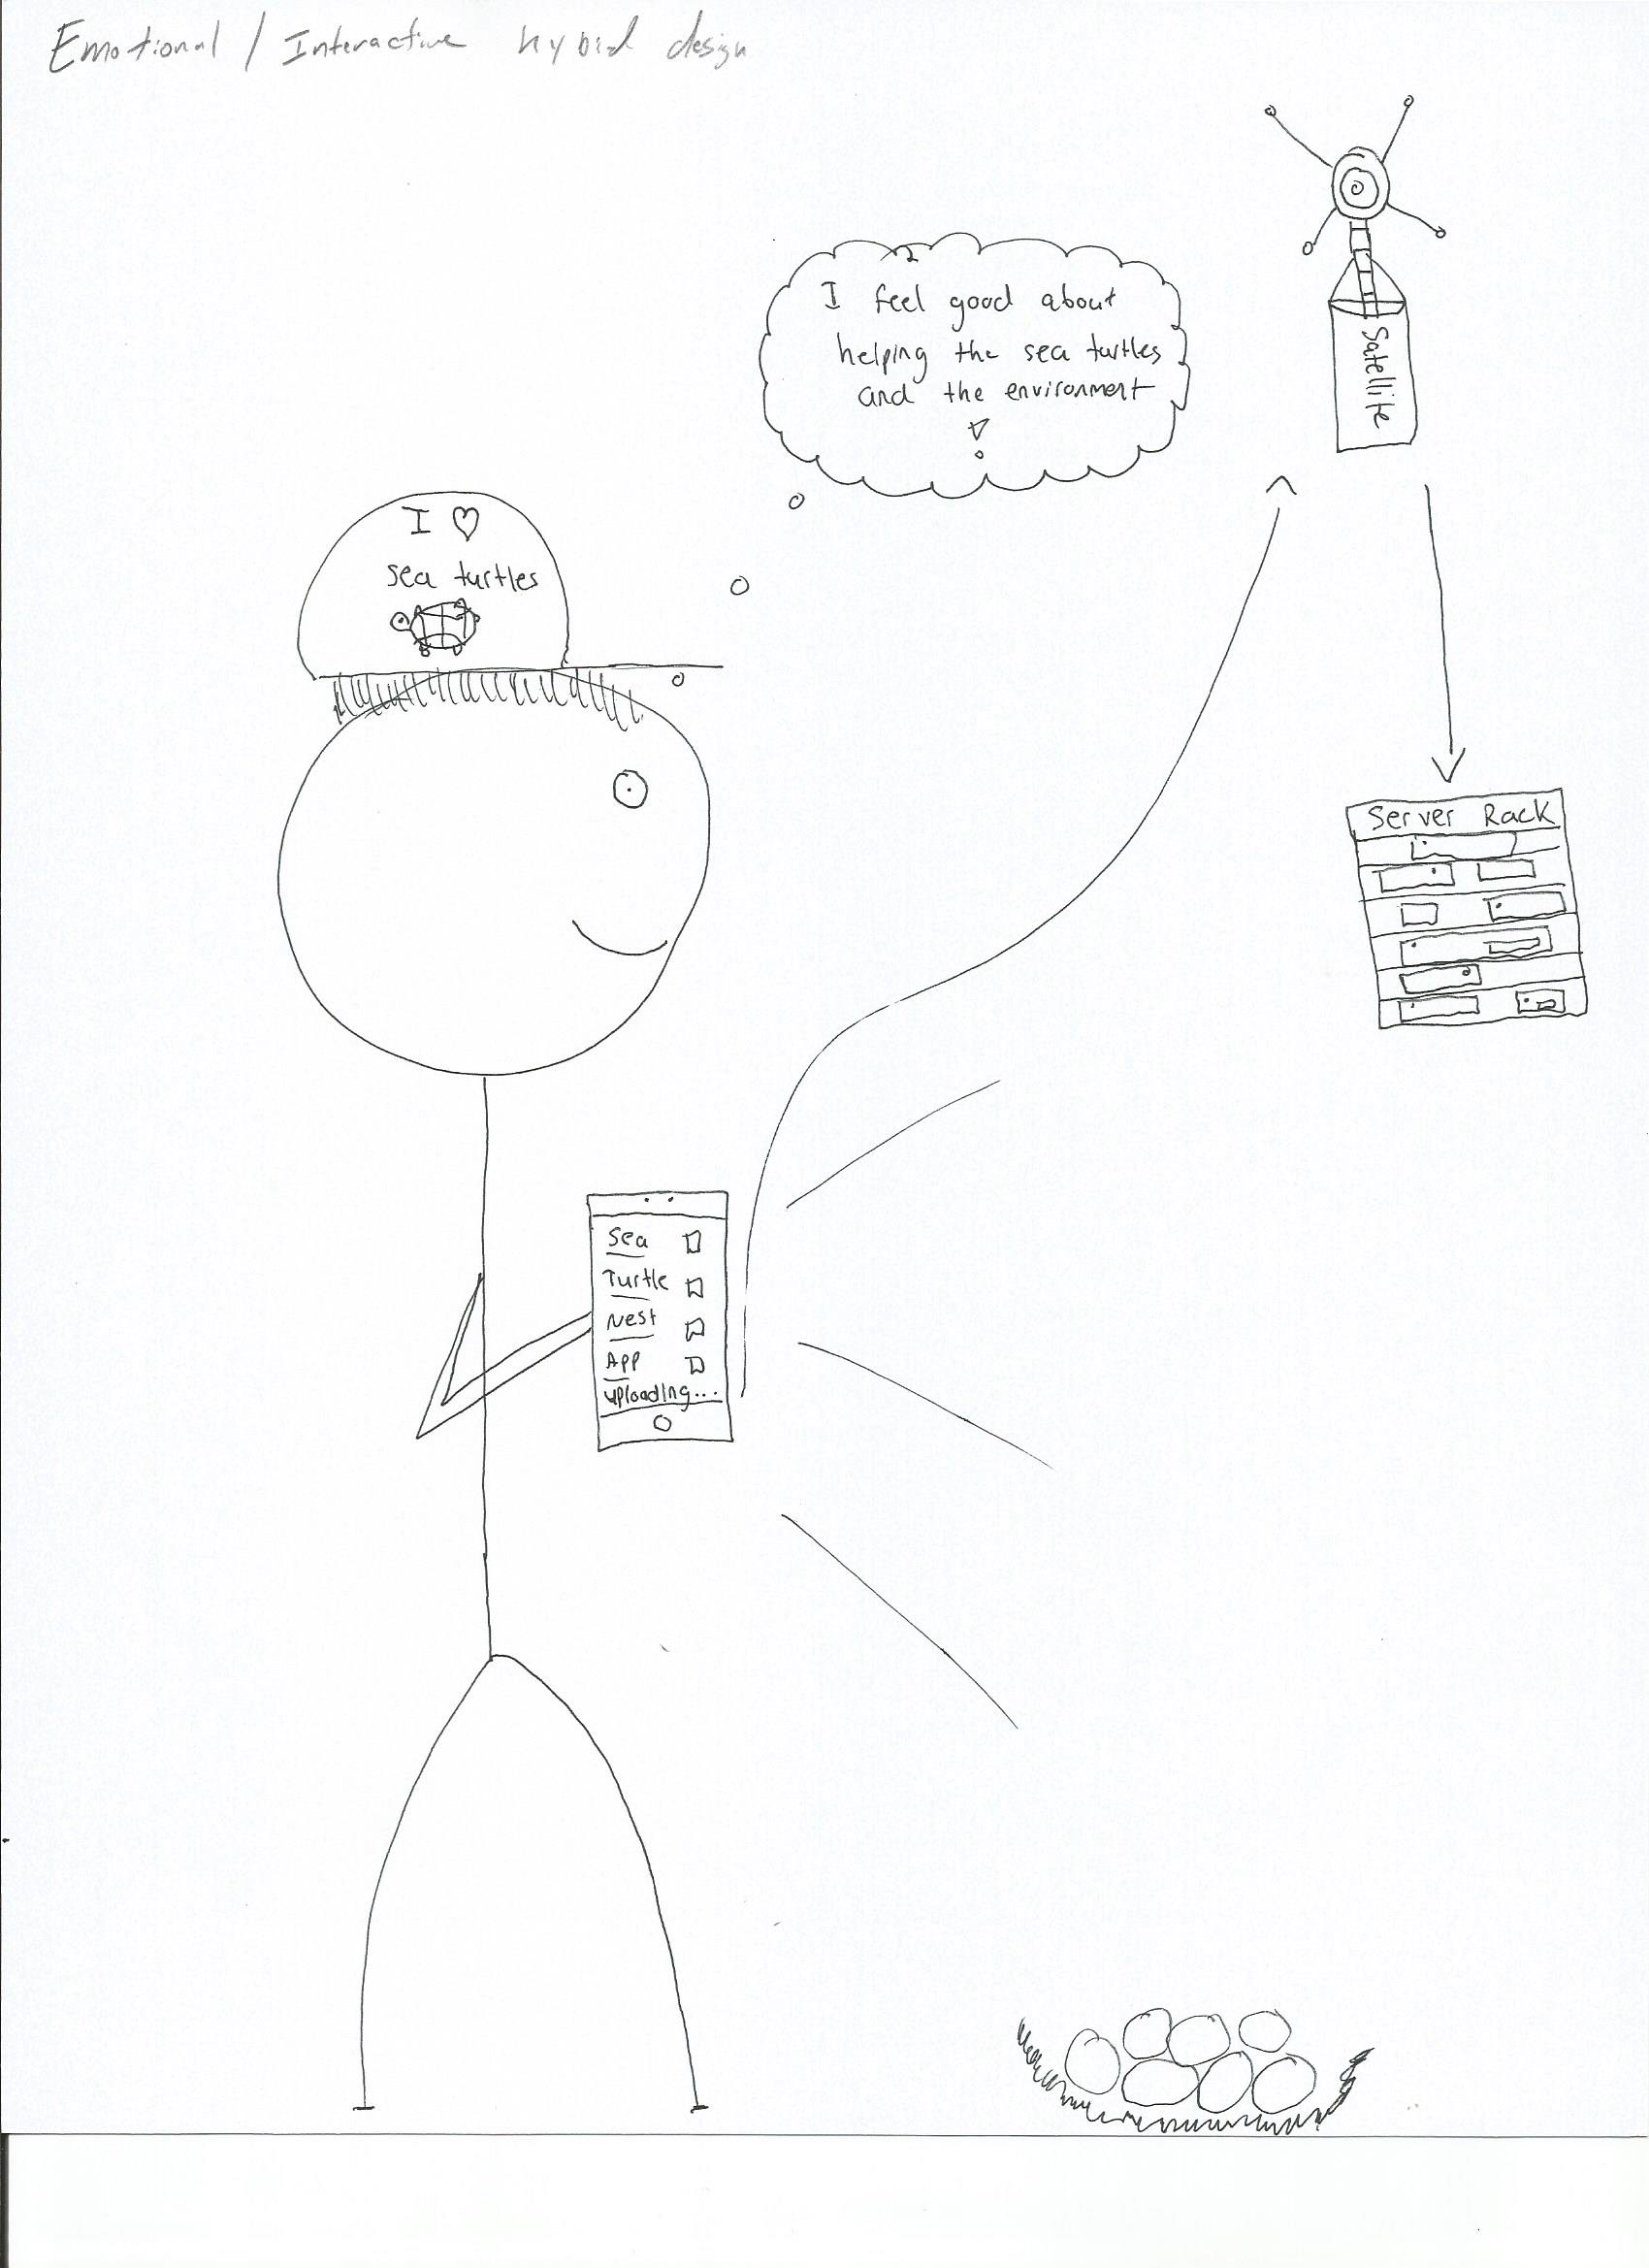 Emotional / Interactive hybrid design
I feel good about
helping the sea turtles
and the environment
!
Satellite
I ♡
sea turtles
Server Rack
Sea
Turtle
Nest
App
uploading...